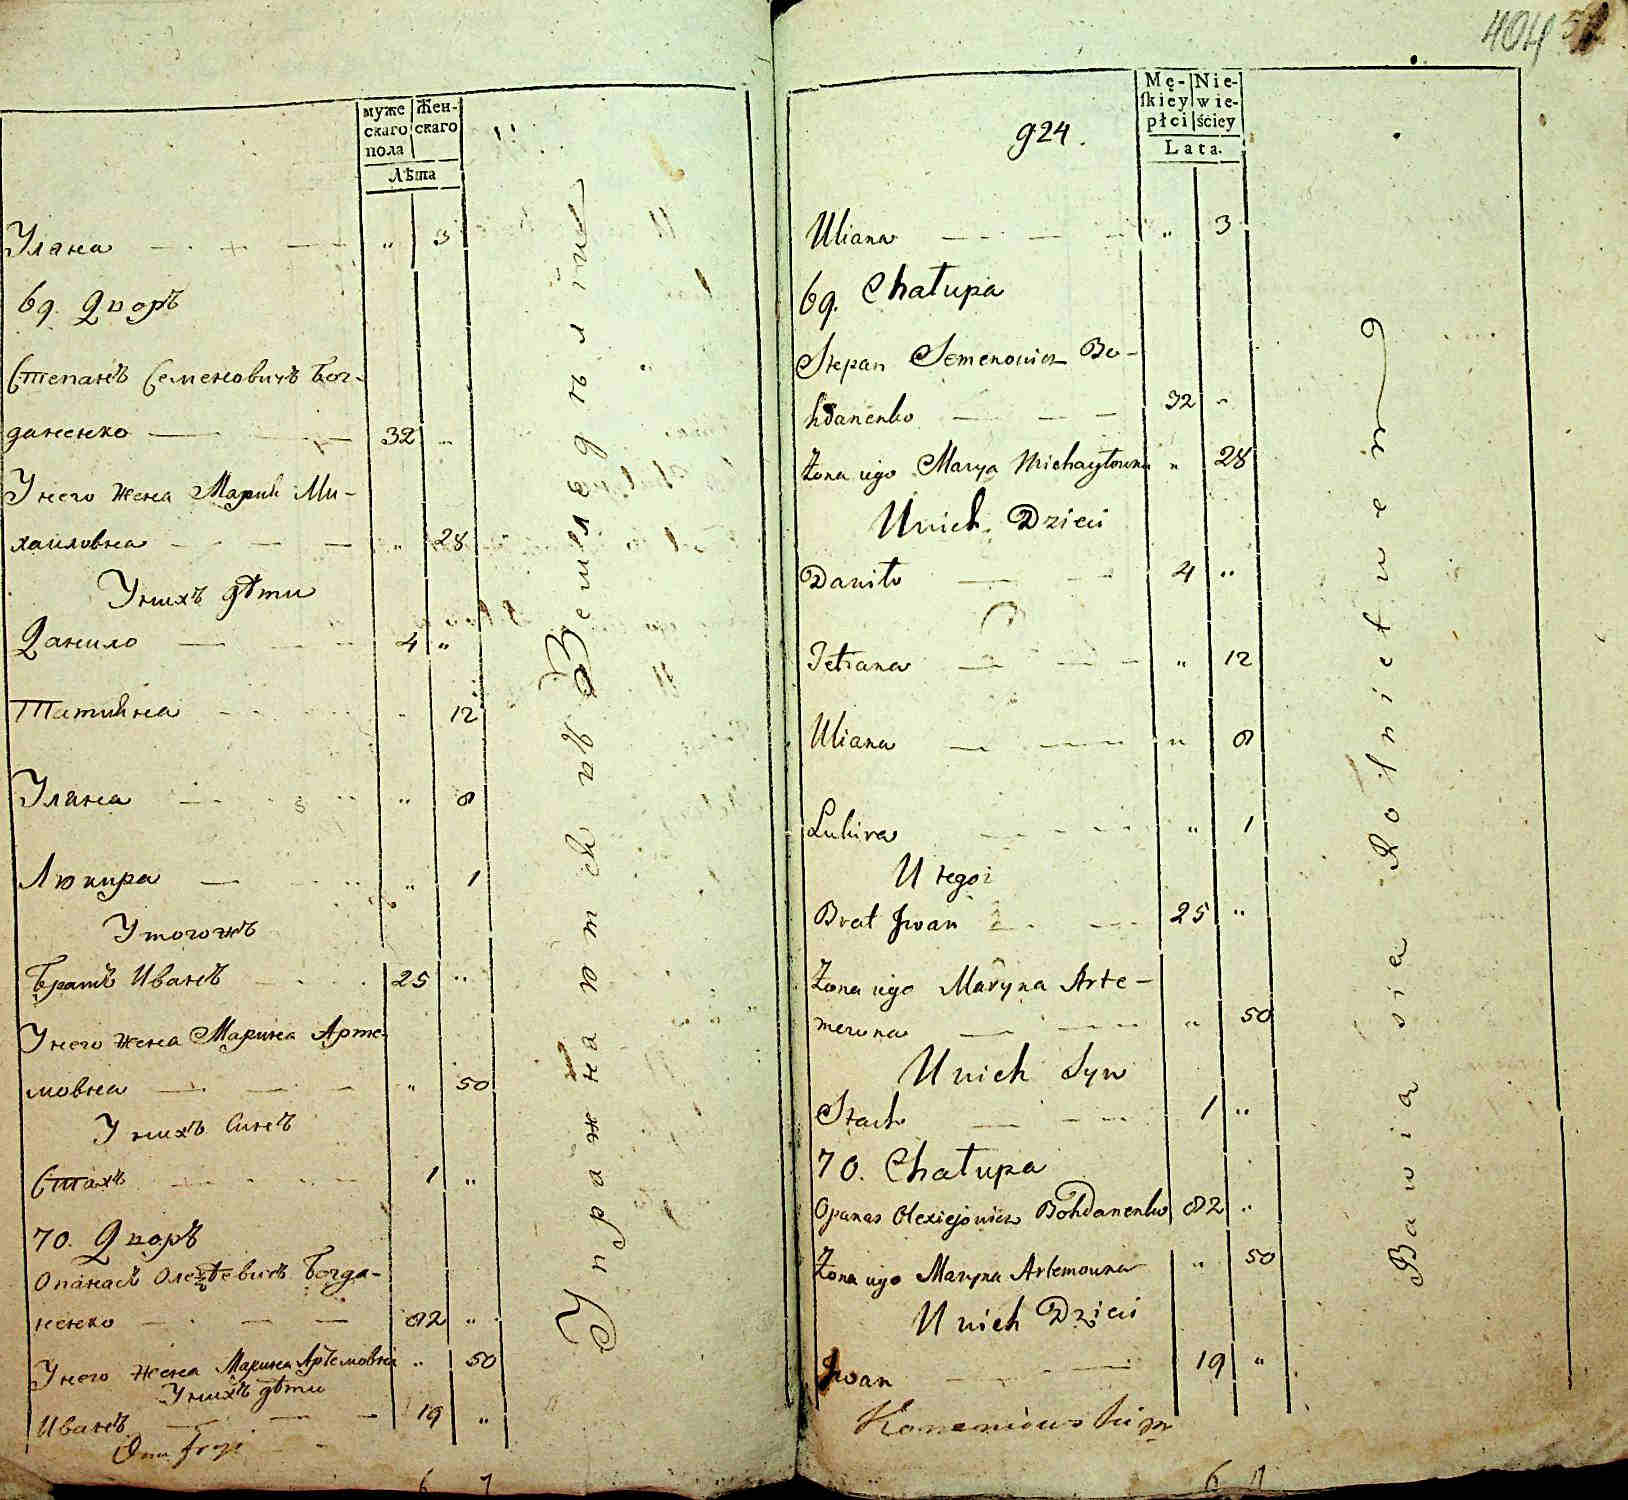 муже
скаго
пола
Жен-
скаго
Лѣта
Уляна „ 3
69. Дворъ
Степанъ Семеновичъ Бог-
даненко 32 „
У него жена Мария Ми-
хайловна „ 28
У нихъ дѣти
Данило 4 „
Татияна „ 12
Уляна „ 8
Люкира „ 1
У тогожъ
Братъ Иванъ 25 „
У него жена Марина Арте-
мовна „ 50
У нихъ Синъ
Стахъ 1 „
70. Дворъ
Опанасъ Богда-
ненко 82 „
У него жена Марина Артемовна „ 50
У нихъ дѣти
Иванъ 19 „
6 7
Упражнаютса въ Земледѣлѣи
404
924.
Mę-
skiey
płci
Nie-
wie-
ściey
Lata.
Uliana „ 3
69. Chałupa
Stepan Semenowicz Bo-
hdanenko 32 „
Żona iego Marya Michayłowna „ 28
U nich Dzieci
Daniło 4 „
Tetiana „ 12
Uliana „ 8
Lukira „ 1
U tegoż
Brat Jwan 25 „
Żona iego Maryna Arte-
mowna „ 50
U nich Syn
Stach 1 „
70. Chałupa
Opanas Olexiejowicz Bohdanenko 82 „
Żona iego Maryna Artemowna „ 50
U nich Dzieci
Jwan 19 „
6 7
Bawią się Rolnictwem